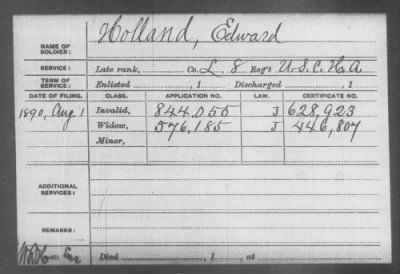 NAME OF SOLDIER: Holland, Edward
SERVICE: Late rank, Co. L. 8 Reg't U.S.C.H.A.
TERM OF SERVICE: Enlisted , 1 Discharged , 1
DATE OF FILING. CLASS. APPLICATION NO. LAW. CERTIFICATE NO.
1890, Aug. 1 Invalid, 844,055 J 628,923
Widow, 576,185 J 446,807
Minor,
ADDITIONAL SERVICES:
REMARKS:
Died , 1 , at